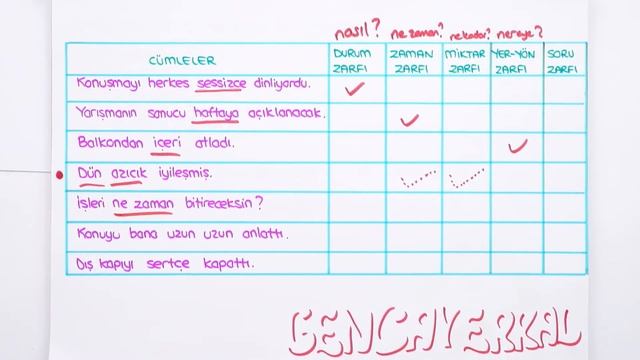 nasıl? ne zaman? ne kadar? nereye?
CÜMLELER DURUM ZARFI ZAMAN ZARFI MİKTAR ZARFI YER-YÖN ZARFI SORU ZARFI
Konuşmayı herkes sessizce dinliyordu.
Yarışmanın sonucu haftaya açıklanacak.
Balkondan içeri atladı.
Dün azıcık iyileşmiş.
İşleri ne zaman bitireceksin?
Konuyu bana uzun uzun anlattı.
Dış kapıyı sertçe kapattı.
GENCAYERKAL